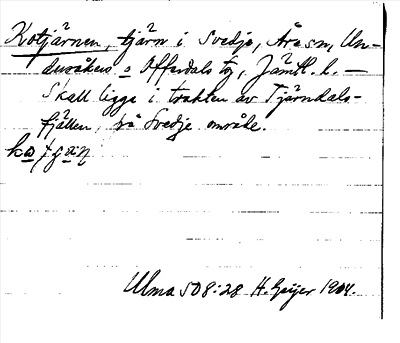 Kotjärnen, tjärn i Svedje, Åre sn, Un-
dersåkers o Offerdals tg, Jämtl. l. —
Skall ligge i trakten av Tjärndals-
fjällen, på Svedje område.
Ulma 508:28 H. Geijer 1904.